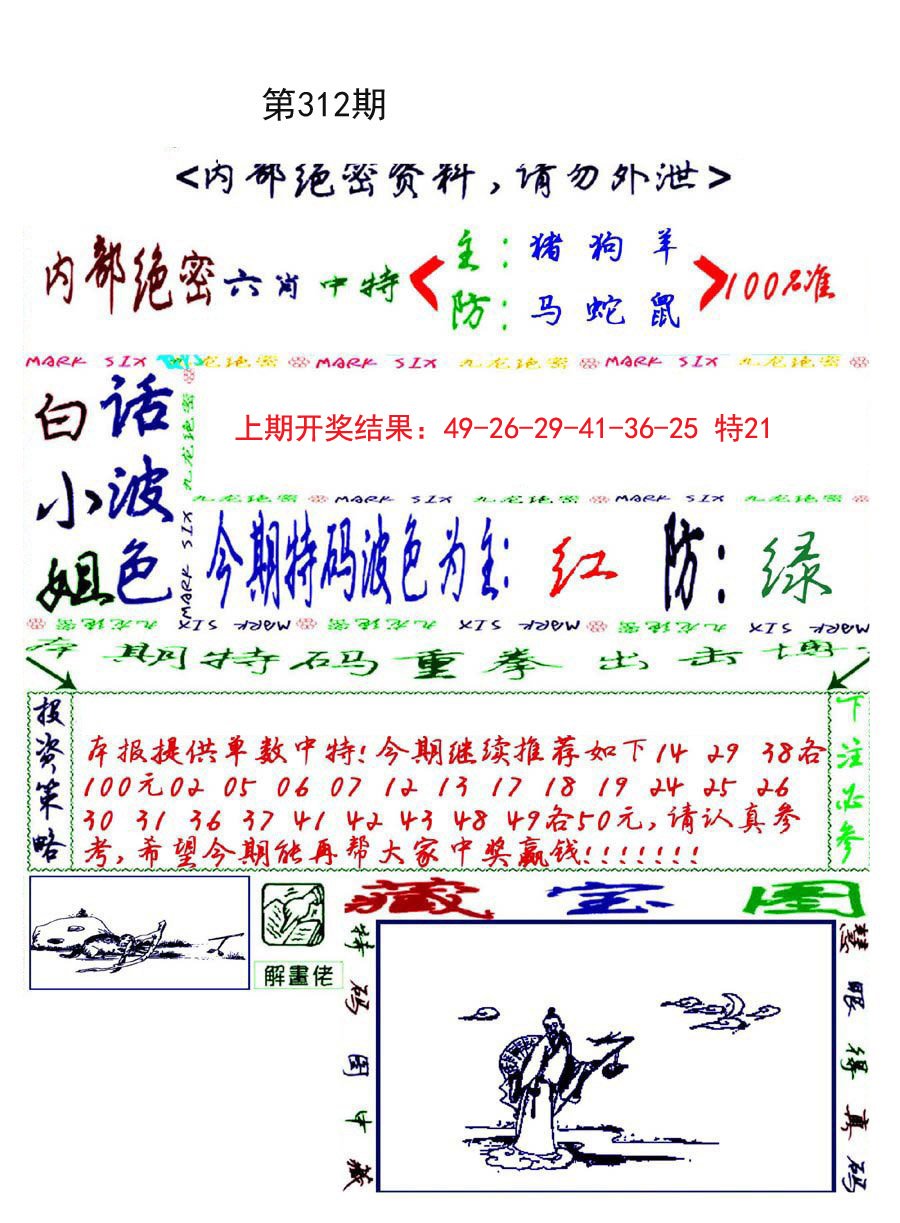 第312期
<内部绝密资料,请勿外泄>
内部绝密六肖中特
主:猪狗羊
防:马蛇鼠
100%准
MARK SIX 九龙绝密 MARK SIX 九龙绝密 MARK SIX 九龙绝密
白话
小波
姐色
九龙绝密
MARK SIX
上期开奖结果:49-26-29-41-36-25 特21
九龙绝密 MARK SIX 九龙绝密 MARK SIX 九龙绝密
今期特码波色为主:红 防:绿
九龙绝密 MARK SIX MARK SIX 九龙绝密 MARK SIX MARK SIX 九龙绝密 MARK SIX
本期特码重拳出击博
投资策略
本报提供单数中特!今期继续推荐如下14 29 38各
100元02 05 06 07 12 13 17 18 19 24 25 26
30 31 36 37 41 42 43 48 49各50元,请认真参
考,希望今期能再帮大家中奖赢钱!!!!!!!
下注必参
解畫佬
藏宝图
特码图中藏
慧眼得真码